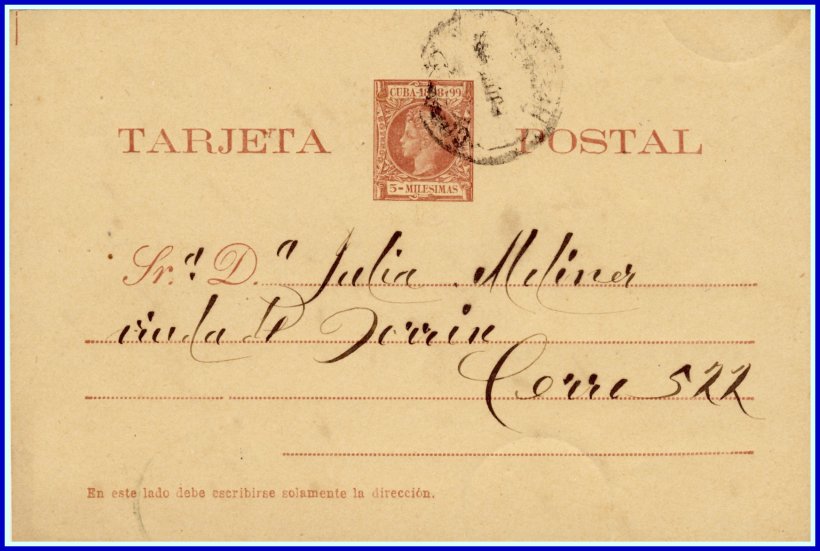 CUBA-1898 Y 99
TARJETA POSTAL
5-MILESIMAS
Sr.ª D.ª Julia Moliner
viuda de Torrin
Cerro 522
En este lado debe escribirse solamente la dirección.